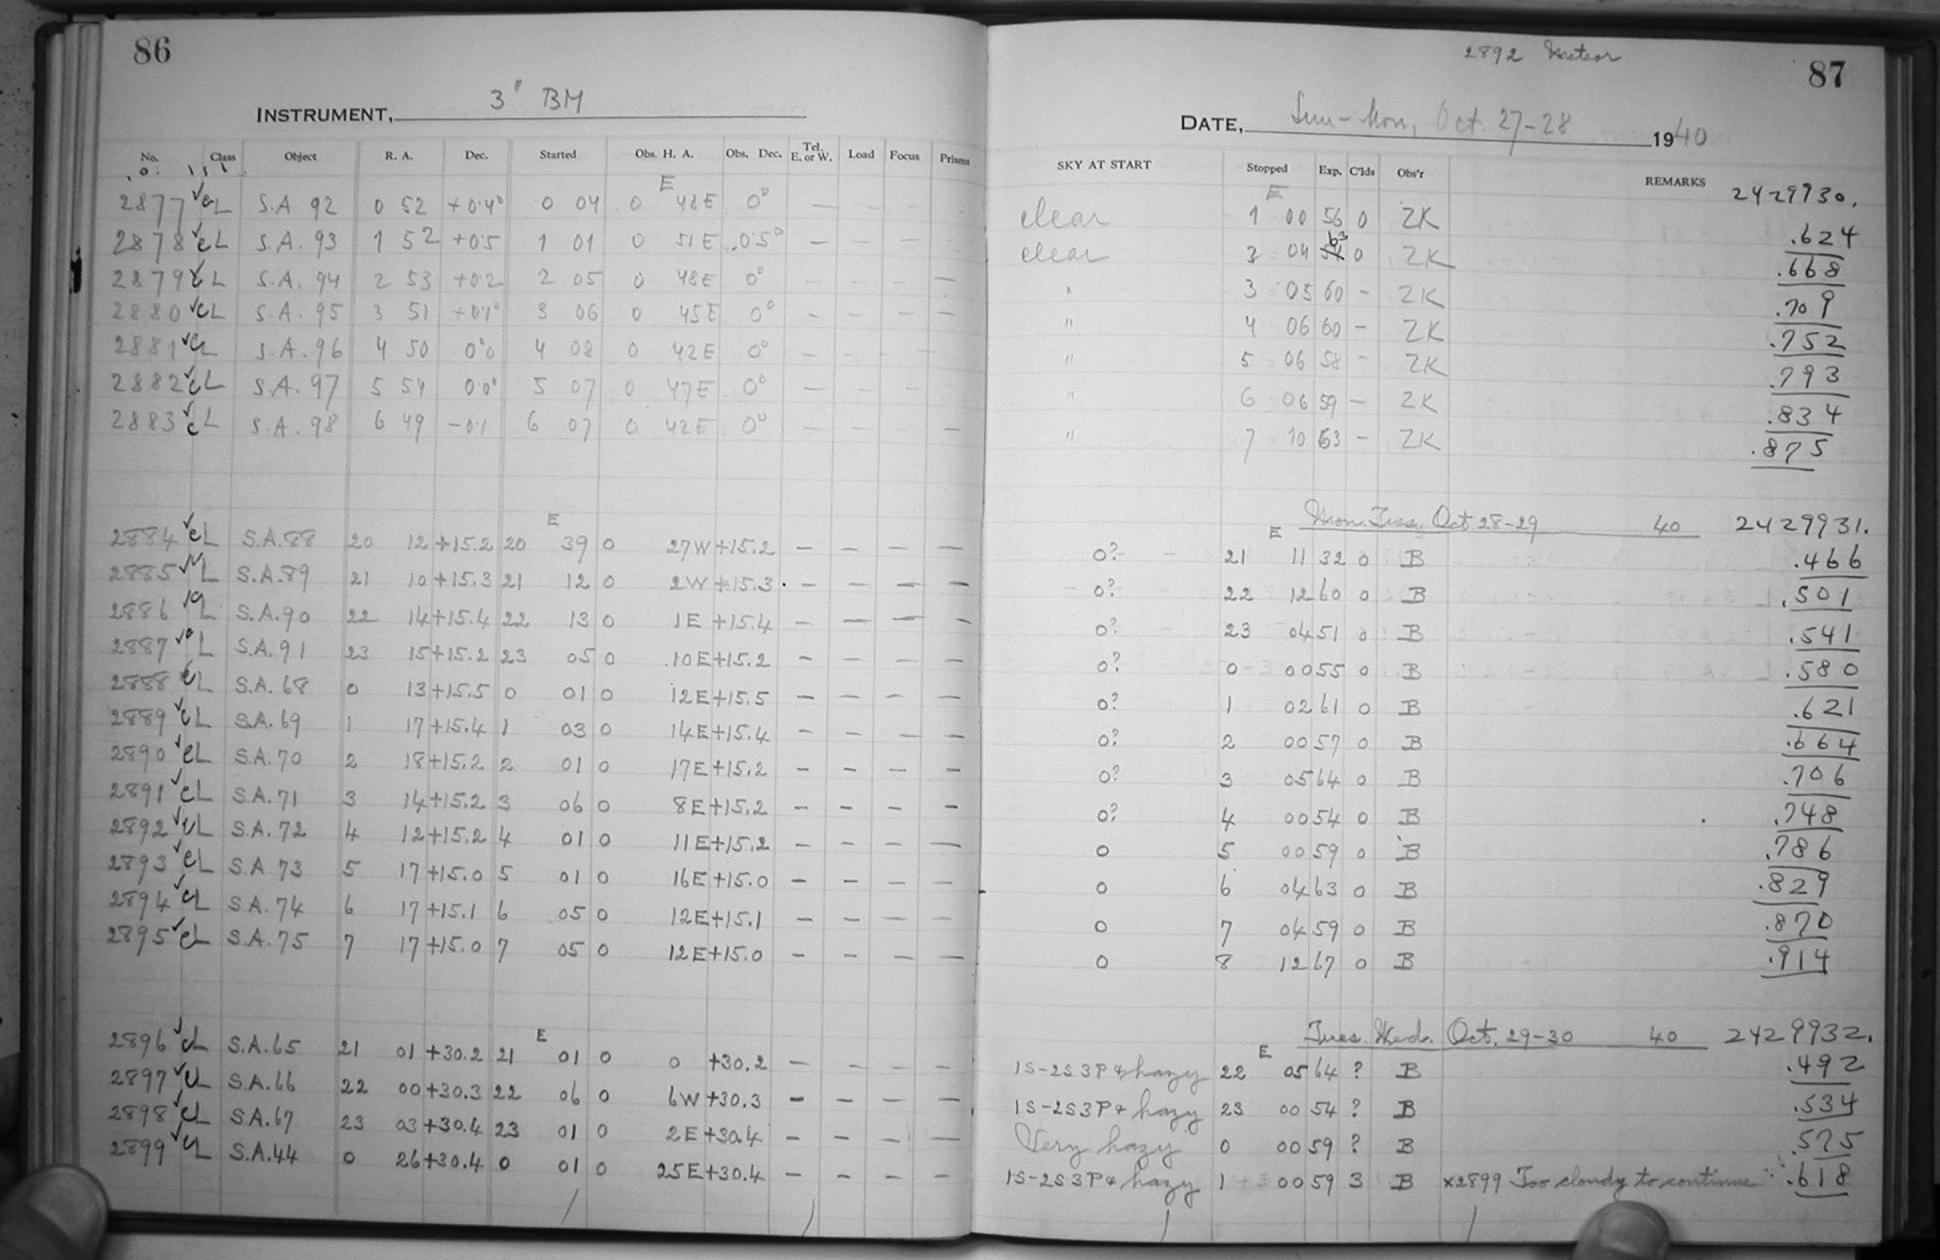 86
INSTRUMENT, 3" BM
No. Class Object R. A. Dec. Started Obs. H. A. Obs. Dec. Tel. E. or W. Load Focus Prisms
E
2877 eL S.A 92 0 52 +0.4° 0 04 0 48E 0° — — — —
2878 eL S.A. 93 1 52 +0.5 1 01 0 51E 0.5° — — — —
2879 eL S.A. 94 2 53 +0.2 2 05 0 48E 0° — — — —
2880 eL S.A. 95 3 51 +0.1° 3 06 0 45E 0° — — — —
2881 eL S.A. 96 4 50 0.0 4 08 0 42E 0° — — — —
2882 eL S.A. 97 5 54 0.0° 5 07 0 47E 0° — — —
2883 eL S.A. 98 6 49 -0.1 6 07 0 42E 0° — — —
E
2884 eL S.A.88 20 12 +15.2 20 39 0 27W +15.2 — — — —
2885 L S.A.89 21 10 +15.3 21 12 0 2W +15.3 — — — —
2886 L S.A.90 22 14 +15.4 22 13 0 1E +15.4 — — — —
2887 L S.A.91 23 15 +15.2 23 05 0 10E +15.2 — — — —
2888 eL S.A.68 0 13 +15.5 0 01 0 12E +15.5 — — — —
2889 eL S.A.69 1 17 +15.4 1 03 0 14E +15.4 — — — —
2890 eL S.A.70 2 18 +15.2 2 01 0 17E +15.2 — — — —
2891 eL S.A.71 3 14 +15.2 3 06 0 8E +15.2 — — — —
2892 eL S.A.72 4 12 +15.2 4 01 0 11E +15.2 — — — —
2893 eL S.A.73 5 17 +15.0 5 01 0 16E +15.0 — — — —
2894 eL S.A.74 6 17 +15.1 6 05 0 12E +15.1 — — — —
2895 eL S.A.75 7 17 +15.0 7 05 0 12E +15.0 — — — —
E
2896 eL S.A.65 21 01 +30.2 21 01 0 0 +30.2 — — — —
2897 eL S.A.66 22 00 +30.3 22 06 0 6W +30.3 — — — —
2898 eL S.A.67 23 03 +30.4 23 01 0 2E +30.4 — — — —
2899 eL S.A.44 0 26 +30.4 0 01 0 25E +30.4 — — — —
2892 Meteor
87
DATE, Sun-Mon, Oct. 27-28 1940
SKY AT START Stopped Exp. C'lds Obs'r REMARKS 2429930.
E
clear 1 00 56 0 ZK .624
clear 2 04 63 0 ZK .668
" 3 05 60 — ZK .709
" 4 06 60 — ZK .752
" 5 06 58 — ZK .793
" 6 06 59 — ZK .834
" 7 10 63 — ZK .875
E Mon. Tues. Oct 28-29 40 2429931.
0? 21 11 32 0 B .466
0? 22 12 60 0 B .501
0? 23 04 51 0 B .541
0? 0 00 55 0 B .580
0? 1 02 61 0 B .621
0? 2 00 57 0 B .664
0? 3 05 64 0 B .706
0? 4 00 54 0 B .748
0 5 00 59 0 B .786
0 6 04 63 0 B .829
0 7 04 59 0 B .870
0 8 12 67 0 B .914
E Tues. Wed. Oct. 29-30 40 2429932.
1S-2S3P+ hazy 22 05 64 ? B .492
1S-2S3P+ hazy 23 00 54 ? B .534
Very hazy 0 00 59 ? B .575
1S-2S3P+ hazy 1 00 59 3 B x2899 Too cloudy to continue .618